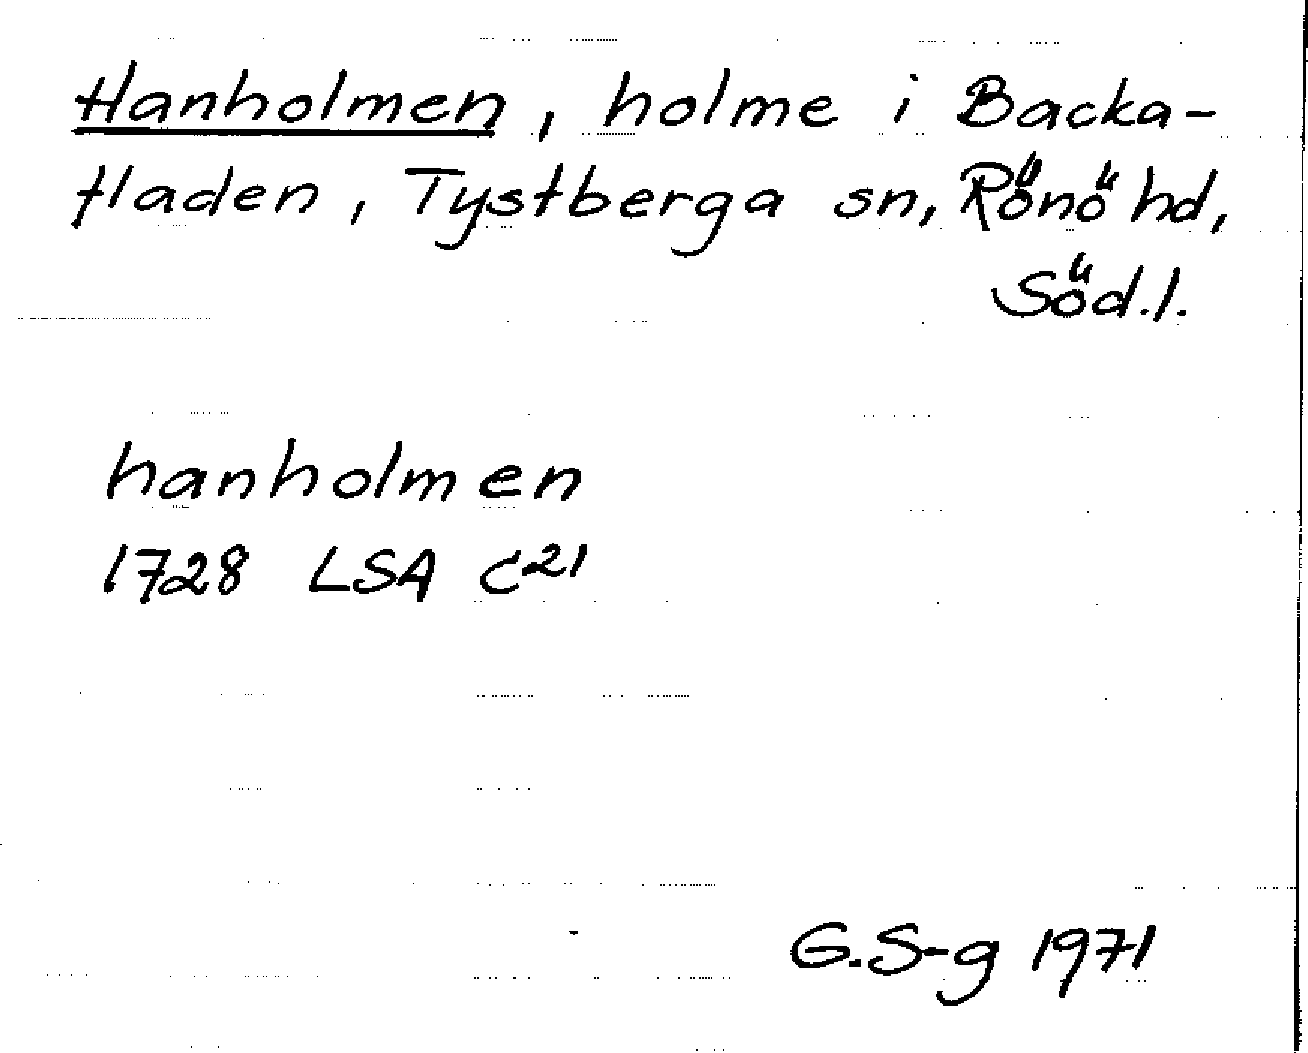 Hanholmen, holme i Backa-
fladen, Tystberga sn, Rönö hd,
Söd.l.
hanholmen
1728 LSA C²¹
G.S-g 1971